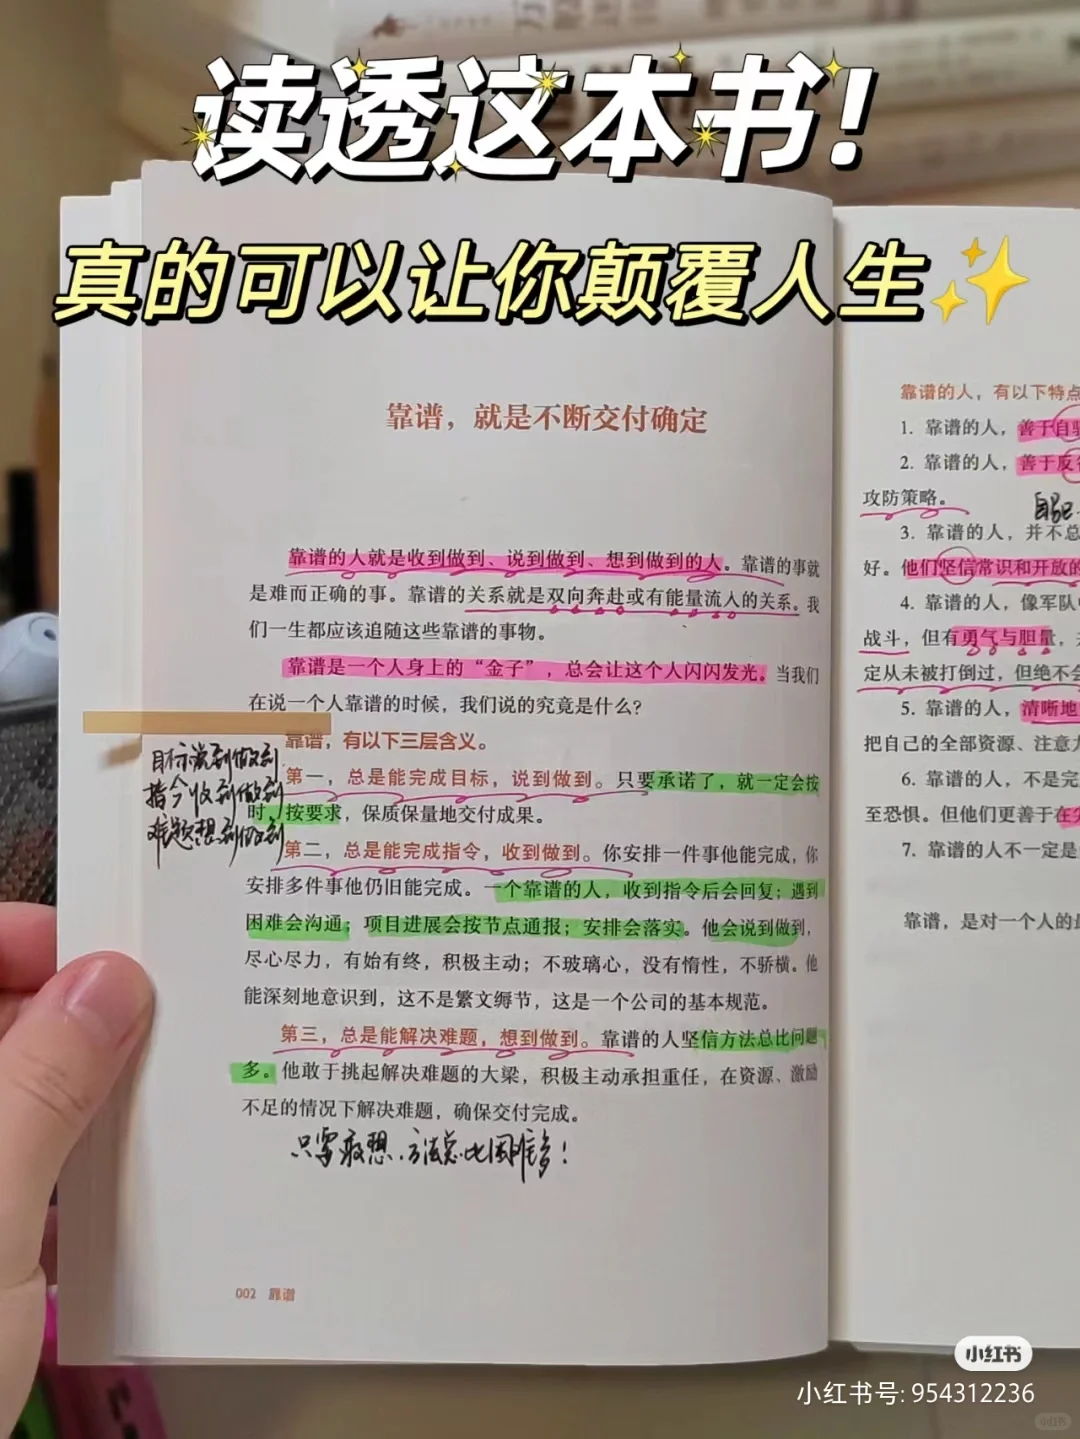 读透这本书!
真的可以让你颠覆人生
靠谱，就是不断交付确定
靠谱的人就是收到做到、说到做到、想到做到的人。靠谱的事就
是难而正确的事。靠谱的关系就是双向奔赴或有能量流入的关系。我
们一生都应该追随这些靠谱的事物。
靠谱是一个人身上的“金子”，总会让这个人闪闪发光。当我们
在说一个人靠谱的时候，我们说的究竟是什么？
靠谱，有以下三层含义。
第一，总是能完成目标，说到做到。只要承诺了，就一定会按
时、按要求，保质保量地交付成果。
第二，总是能完成指令，收到做到。你安排一件事他能完成，你
安排多件事他仍旧能完成。一个靠谱的人，收到指令后会回复；遇到
困难会沟通；项目进展会按节点通报；安排会落实。他会说到做到，
尽心尽力，有始有终，积极主动；不玻璃心，没有惰性，不骄横。他
能深刻地意识到，这不是繁文缛节，这是一个公司的基本规范。
第三，总是能解决难题，想到做到。靠谱的人坚信方法总比问题
多。他敢于挑起解决难题的大梁，积极主动承担重任，在资源、激励
不足的情况下解决难题，确保交付完成。
目标说到做到
指令收到做到
难题想到做到
只要敢想，方法总比困难多！
002 靠谱
靠谱的人，有以下特点
1. 靠谱的人，善于自
2. 靠谱的人，善于反
攻防策略。
自己
3. 靠谱的人，并不总
好。他们坚信常识和开放的
4. 靠谱的人，像军队
战斗，但有勇气与胆量，
定从未被打倒过，但绝不会
5. 靠谱的人，清晰地
把自己的全部资源、注意力
6. 靠谱的人，不是完
至恐惧。但他们更善于在
7. 靠谱的人不一定是
靠谱，是对一个人的最
小红书
小红书号: 954312236
小红书